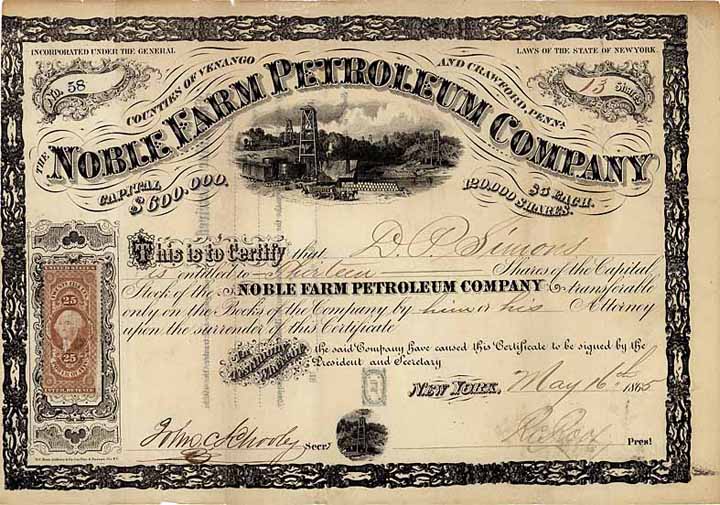 INCORPORATED UNDER THE GENERAL LAWS OF THE STATE OF NEW YORK.
No. 58
13 Shares
COUNTIES OF VENANGO AND CRAWFORD, PENNA.
THE NOBLE FARM PETROLEUM COMPANY
CAPITAL $600.000.
$5 EACH.
120.000 SHARES.
This is to Certify that D. P. Simons
is entitled to thirteen Shares of the Capital
Stock of the NOBLE FARM PETROLEUM COMPANY transferable
only on the Books of the Company by him or his Attorney
upon the surrender of this Certificate
In Testimony Whereof the said Company have caused this Certificate to be signed by the
President and Secretary
NEW YORK, May 16th 1865
John C Schooley Secry
Prest
25
25